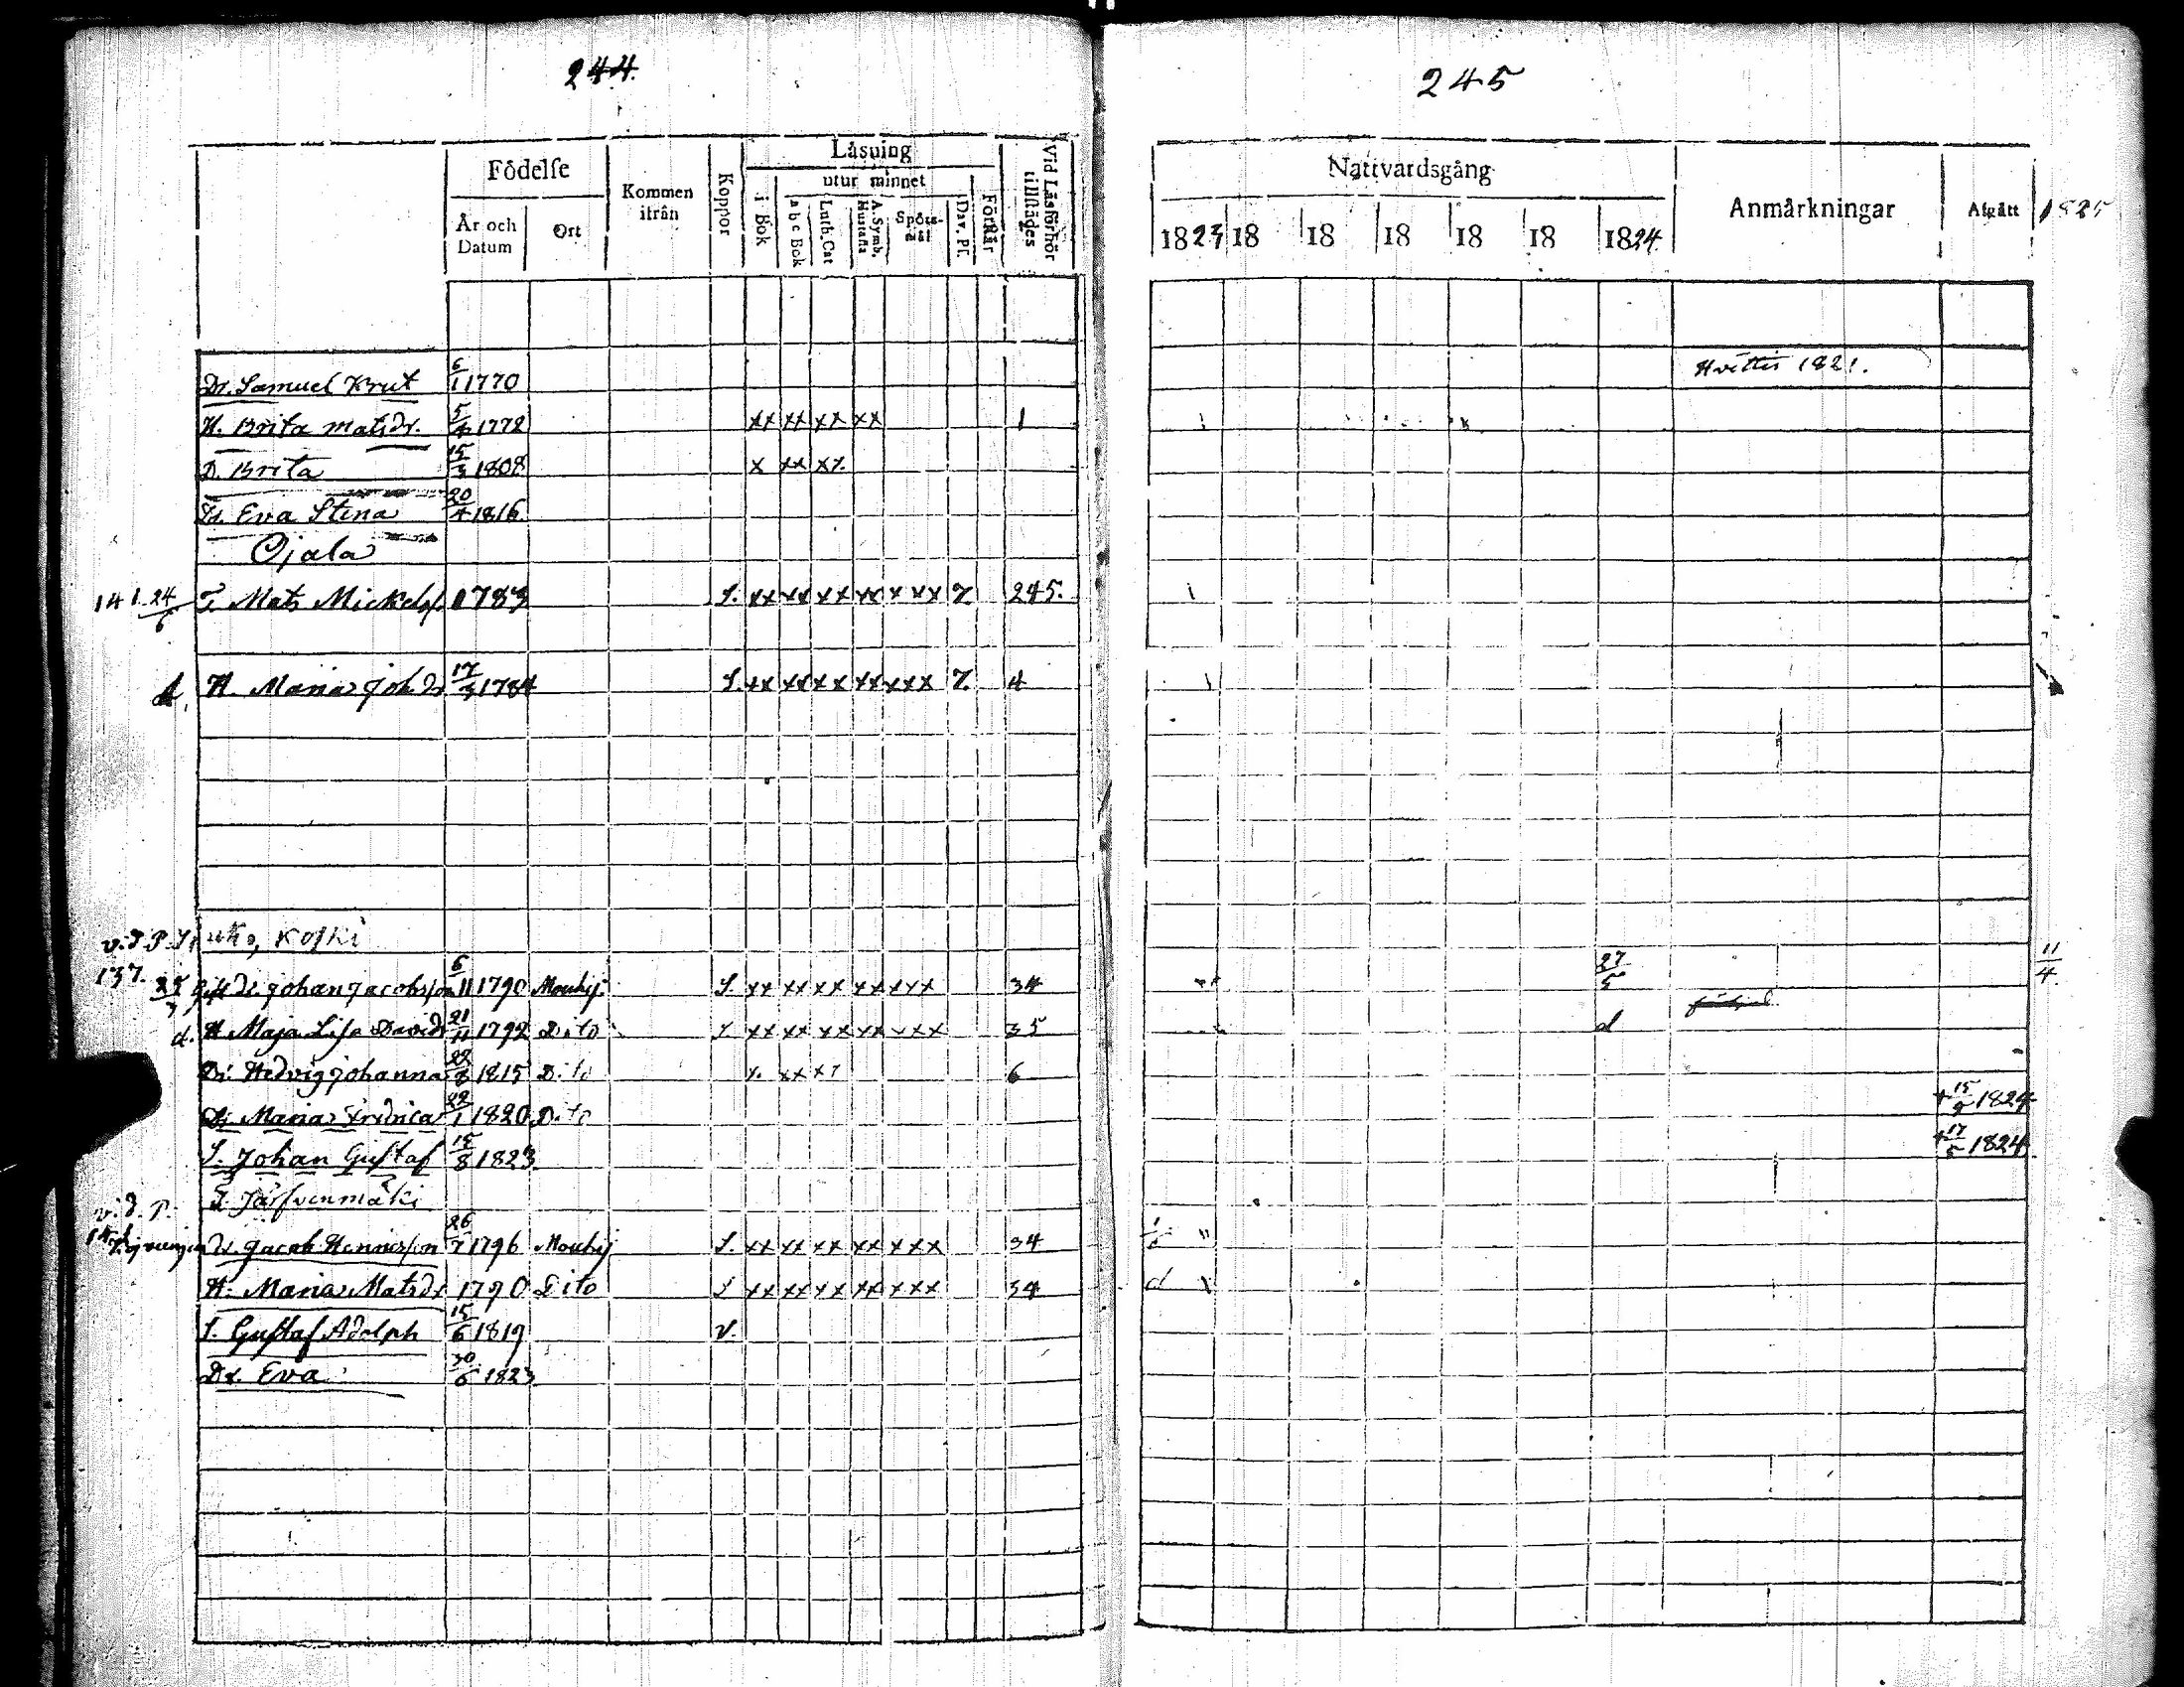 244.
Födelse
Kommen ifrån
Koppor
Läsning
Vid Läsförhör tillstädes
utur minnet
År och Datum
Ort
i Bok
a b c Bok
Luth. Cat
A. Symb. Hustafla
Spörs-mål
Dav. Ps.
Förstår
Dr. Samuel Krut 6/1 1770
H. Brita Matsdr. 5/4 1778 xx xx xx xx 1
D. Brita 15/3 1808 x xx xx
Dr. Eva Stina 20/4 1816
Ojala
141. 24/6 T. Mats Mickelss. 1783 S. xx xx xx xx xxx 7. 245.
d. H. Maria Joh.dr 17/3 1784 S. xx xx xx xx xxx 7. 4
v. T. P. Koski
137. 25/7 Dr. Johan Jacobsson 6/11 1790 Mouhij. S. xx xx xx xx xxx 34
d. H Maja Lisa Davidsdr 21/11 1792 Dito S xx xx xx xx xxx 35
Dr. Hedvig Johanna 28/8 1815 Dito x. xx xx 6
Dr Maria Fredrica 22/1 1820 Dito
S. Johan Gustaf 15/8 1823
T. Järfvenmäki
v. T. P.
Dr. Jacob Hennersson 26/7 1796 Mouhij S. xx xx xx xx xxx 34
H. Maria Matsdr 1790 Dito S xx xx xx xx xxx 34
S. Gustaf Adolph 15/6 1819 v.
Dr. Eva 30/6 1823
245
Nattvardsgång
Anmärkningar
Afgått
1825
1823 18 18 18 18 18 1824
Hvittis 1821.
27/5
11/4
d
+ 15/9 1824
+ 17/5 1824
1/6 "
d